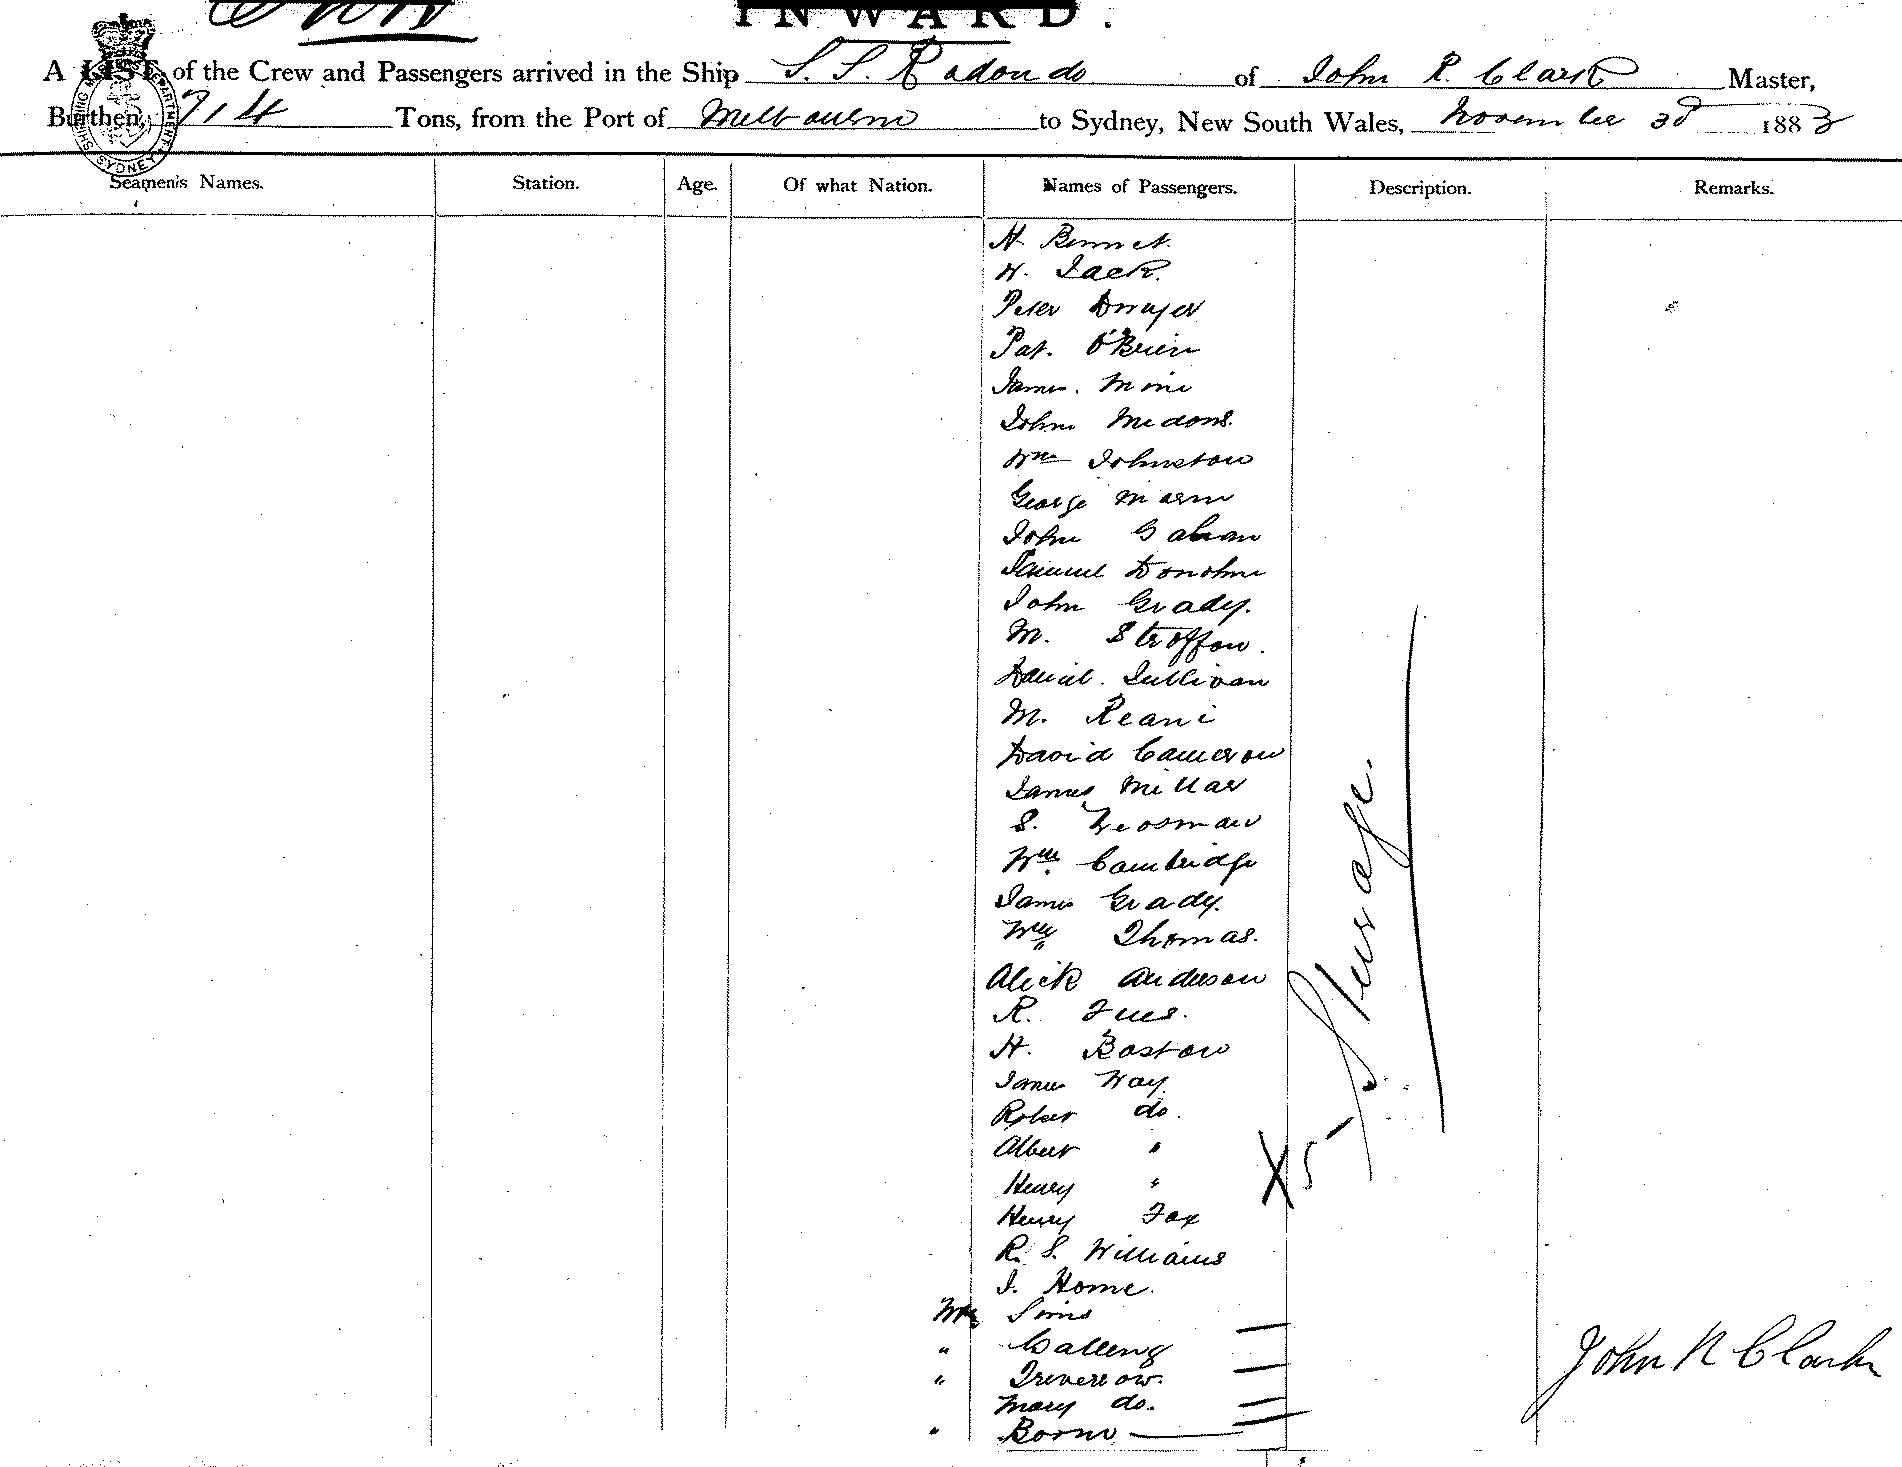 INWARD.
A LIST of the Crew and Passengers arrived in the Ship S. S. Rodondo of John R. Clark Master,
Burthen, 714 Tons, from the Port of Melbourne to Sydney, New South Wales, November 3d 1883
SHIPPING MASTER'S DEPARTMENT SYDNEY
Seamen's Names. Station. Age. Of what Nation. Names of Passengers. Description. Remarks.
H. Bennet.
H. Jack.
Peter Dwyer
Pat. O'Brien
James.
John
Wm Johnston
George Mann
John Gahan
Samuel Donohue
John Grady.
M.
Daniel. Sullivan
M. Keani
David Cameron
James Millar
S.
Wm. Cambridge
James Grady.
Wm Thomas.
Alick Anderson
R.
H. Boston
James Way
Robert do.
Albert "
Henry "
Henry Fox
R. S. Williams
J. Home.
Mrs Sims
"
"
Mary do.
"
Steerage.
John R Clark